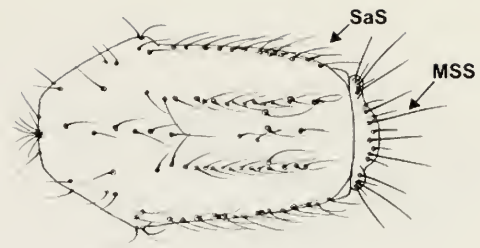 SaS
MSS